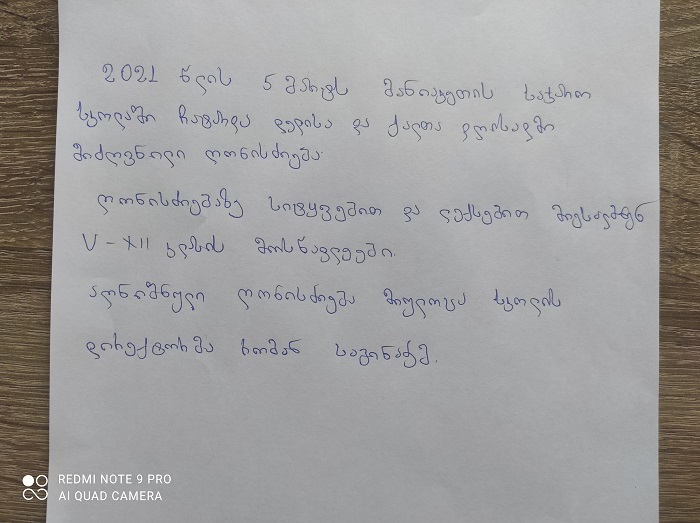 2021 წლის 5 მარტს მანიავეთის საჯარო
სკოლაში ჩატარდა დედისა და ქალთა დღისადმი
მიძღვნილი ღონისძიება
ღონისძიებაზე სიტყვებით და ლექსებით მიესალმნენ
V-XII კლასის მოსწავლეები.
აღნიშნული ღონისძიება მიულოცა სკოლის
დირექტორმა რომან საგინაძემ.
REDMI NOTE 9 PRO
AI QUAD CAMERA